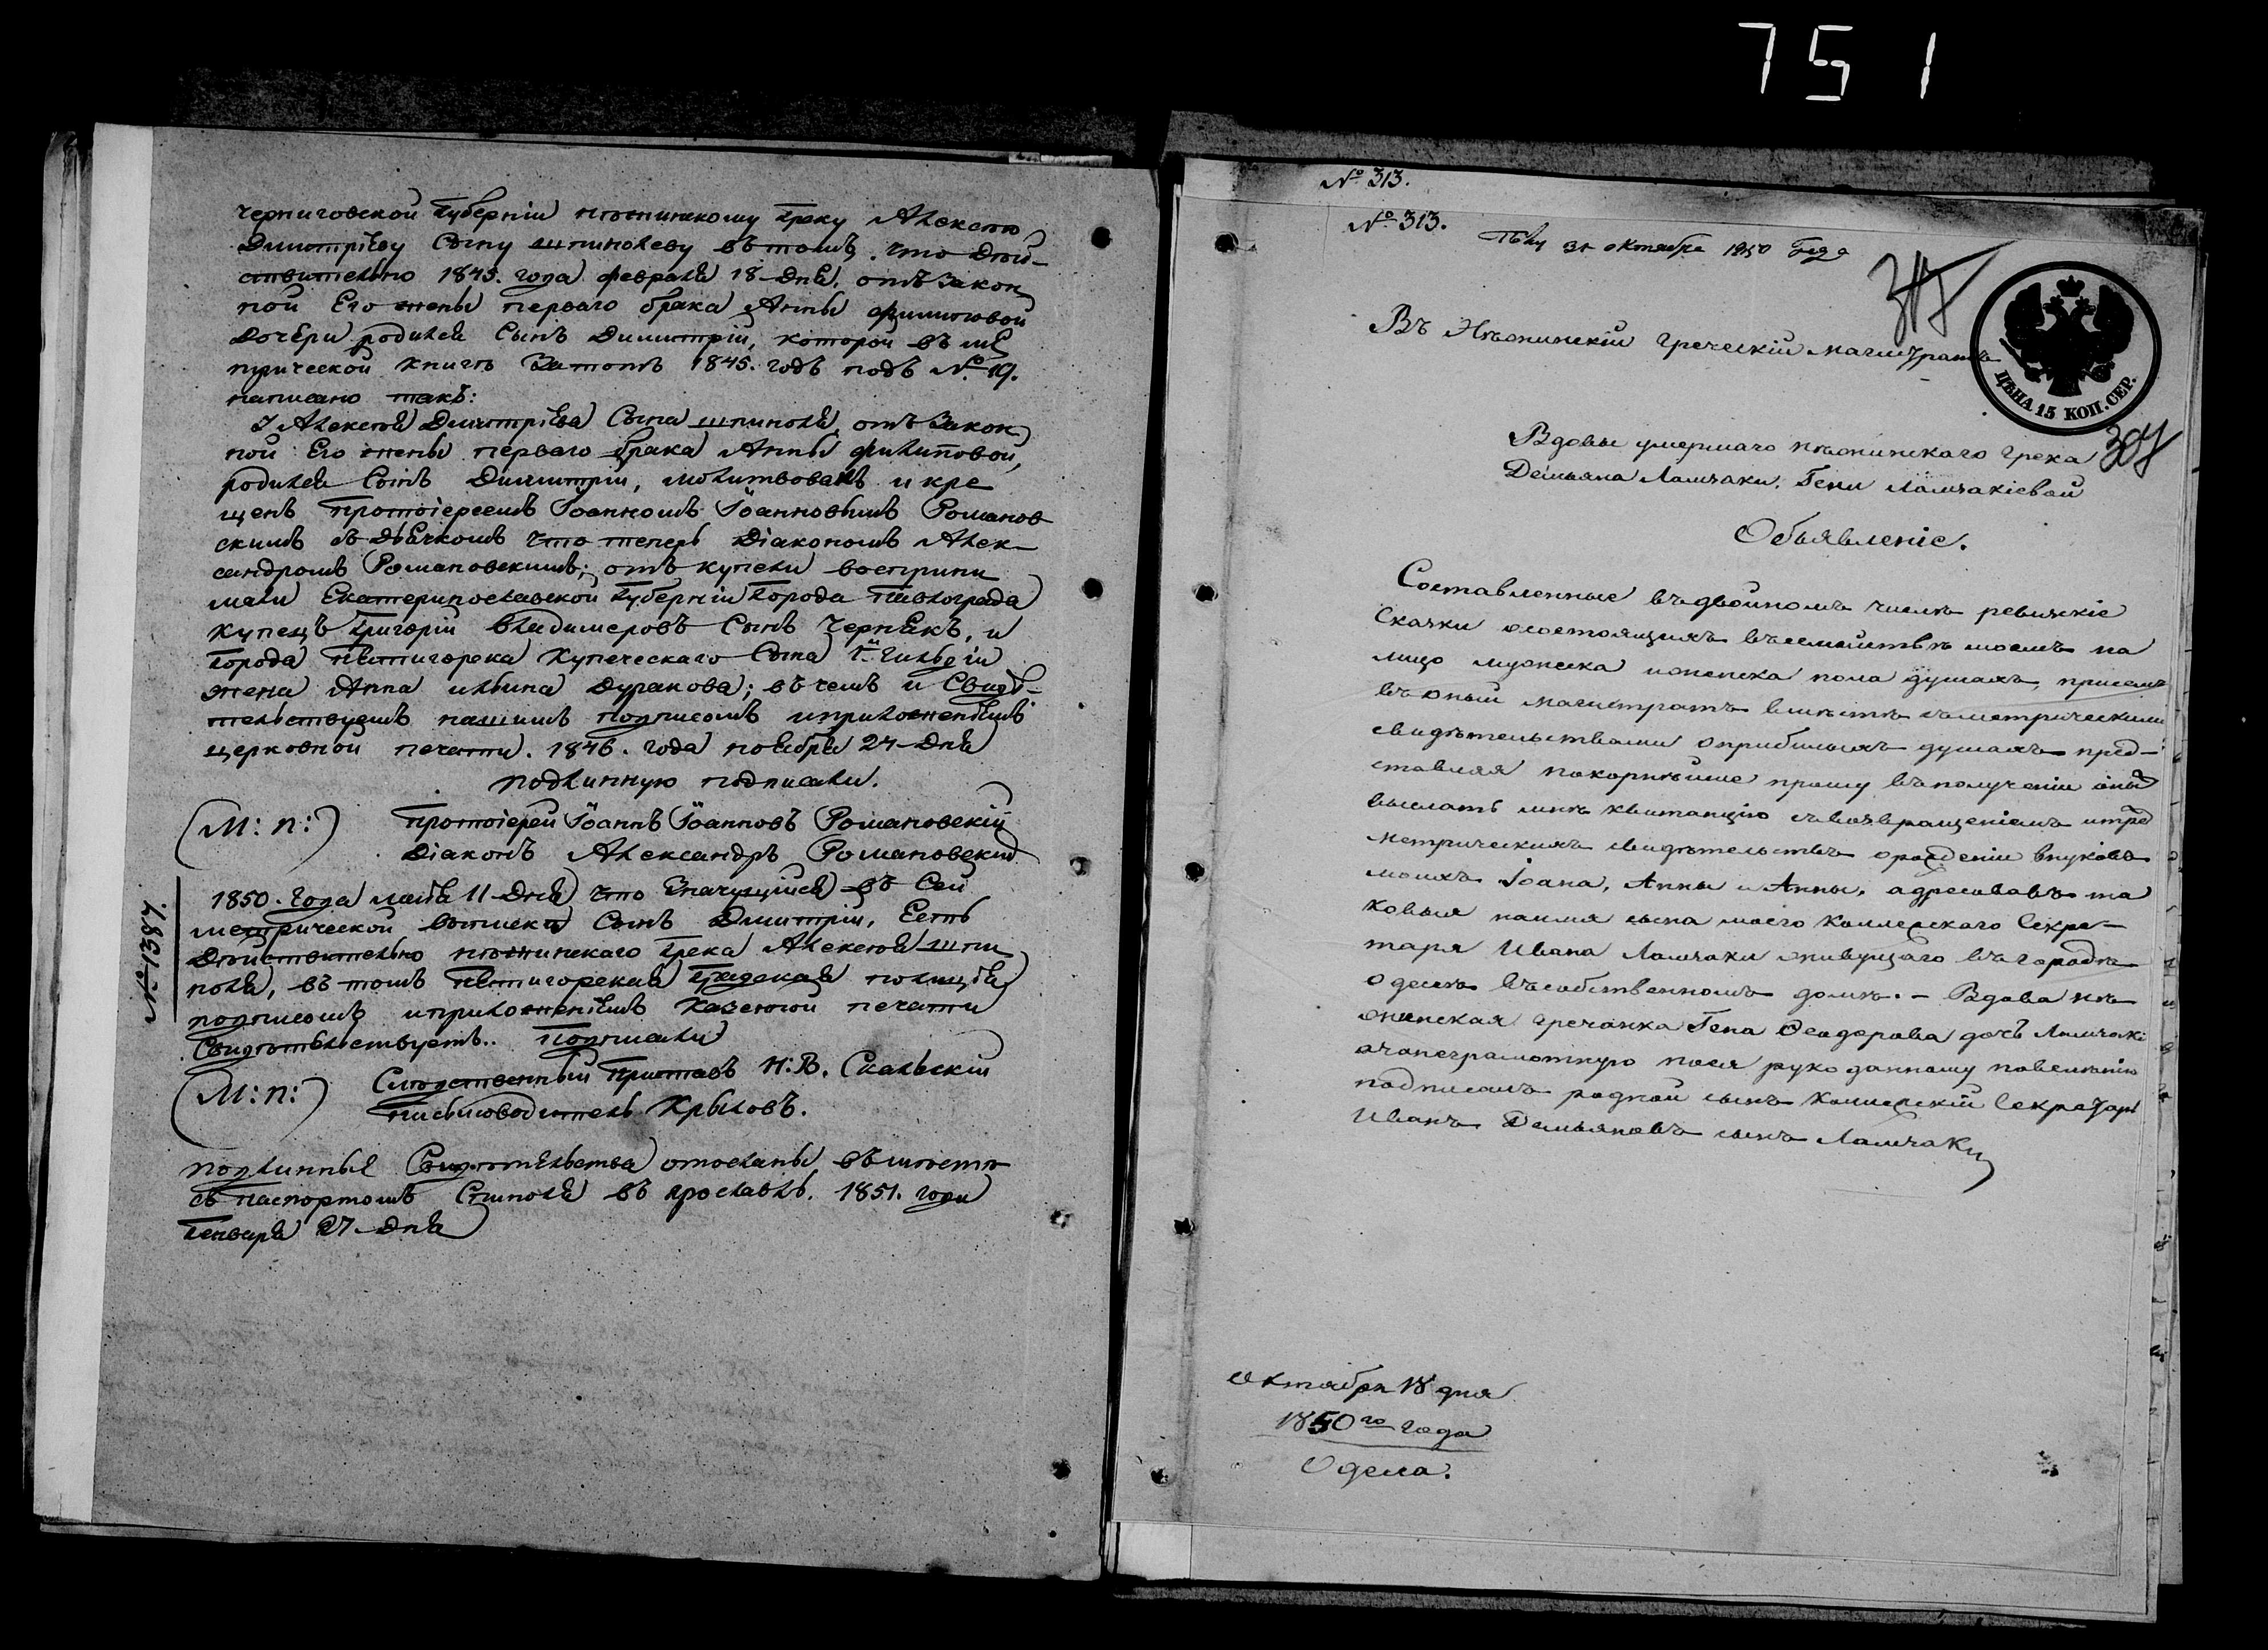 751
черниговской Губерніи нѣжинскому Греку Алексѣю
Димитріеву Сыну шпинолеву въ томъ, что дѣй-
ствительно 1845. года февраля 18 дня, отъ закон
ной Его жены перваго брака Анны филиповой
дочери родился Сынъ Димитрій, которой въ ме
трической книгѣ за тотъ 1845. годъ подъ № 19.
написано такъ:
У Алексѣя Димитріева Сына шпиноля, отъ закон
ной Его жены перваго брака Анны филиповой,
родился Сынъ Димитрій, молитвовалъ и кре
щенъ протоіереемъ Іоанномъ Іоанновымъ Романов
скимъ съ дьячкомъ что теперь діакономъ Алек-
сандромъ Романовскимъ; отъ купели восприни
мали Екатеринославской Губерніи Города Павлограда
купецъ Григорій Владимеровъ Сынъ Чернякъ, и
города Пятигорска купеческаго Сына 1й Гильдіи
жена Анна ильина Дуракова; въ чемъ и Свидѣ-
тельствуемъ нашимъ подписомъ и приложеніемъ
церковной печати. 1846. года ноября 24 дня
подлинную подписали.
(М: п:) Протоіерей Іоаннъ Іоанновъ Романовскій
Діаконъ Александръ Романовскій
1850. года маія 11 дня что значущійся въ сей
метрической выписки Сынъ Димитрій, Есть
дѣйствительно нѣжинскаго Грека Алексѣя шпи
ноля, въ томъ Пятигорская Градская полиція
подписомъ и приложеніемъ казенной печати
Свидѣтельствуетъ. Подписали
(М: п:) Слѣдственный Приставъ Н: В. Скальскій
письмоводитель Крыловъ.
№ 1387.
подлинные Свидѣтельства отосланы, въ мѣстѣ
съ паспортомъ Спиноля въ ярославль. 1851. года
Генваря 27 дня
№ 313.
№ 313.
31 октября 1850 Года
307
Въ Нѣжинскій Греческій магистратъ
ЦѢНА 15 КОП. СЕР.
307
Вдовы умершаго нѣжинскаго грека
Демьяна Ламчаки, Гени Ламчакіевой
Объявленіе.
Составленные въ двойномъ числѣ ревижскіе
Сказки о состоящихъ въ семействѣ моемъ на
лицо мужеска и женска пола душахъ, при семъ
въ оный магистратъ вмѣстѣ съ метрическими
свидѣтельствами о прибылыхъ душахъ пред-
ставляя покорнѣйше прошу въ полученіи оныхъ
выслать мнѣ квитанцію съ возвращеніемъ и трехъ
метрическихъ свидѣтельствъ о рожденіи внуковъ
моихъ Іоана, Анны и Анны, адресовавъ та
ковыя на имя сына моего Коллежскаго Секре-
таря Ивана Ламчаки живущаго въ городѣ
Одессѣ въ собственномъ домѣ. - Вдова нѣ
жинская гречанка Гена Феодорова дочь Ламчаки
а за неграмотную по ея рукоданному повелѣнію
подписалъ родной сынъ Коллежскій Секретарь
Иванъ Демьяновъ сынъ Ламчаки
Октября 18 дня
1850го года
Одесса.